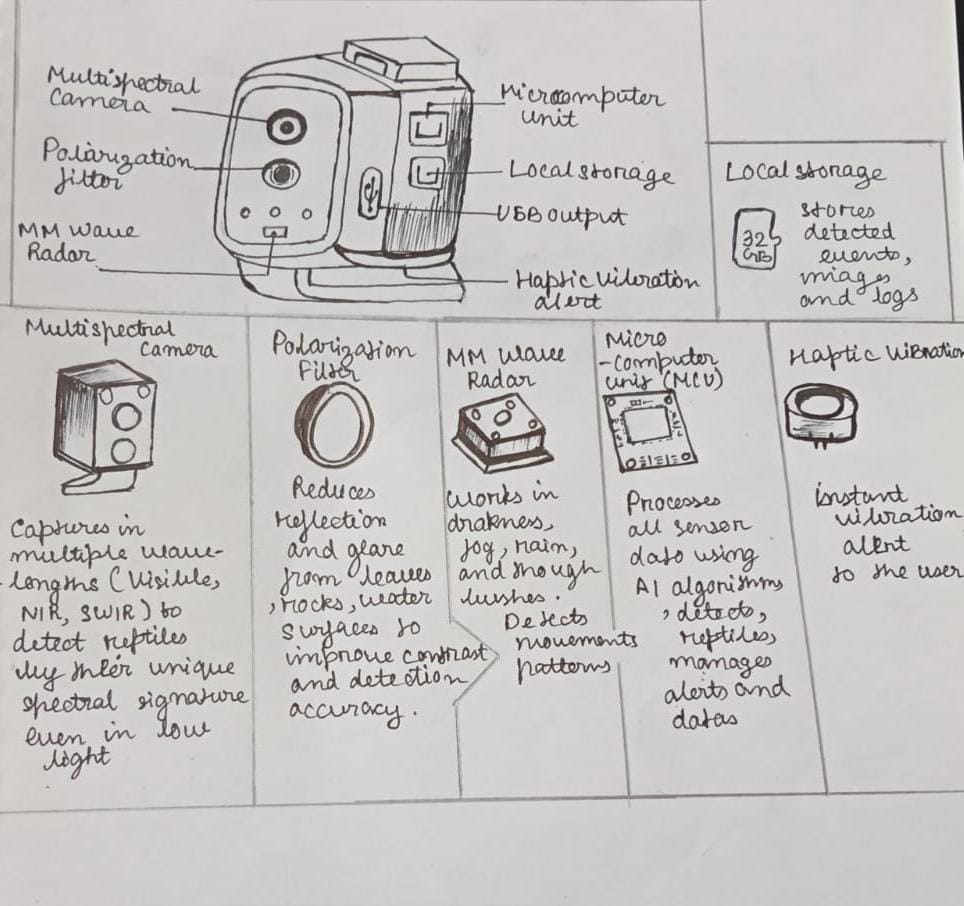 Multispectral
Camera
Polarization
filter
MM Wave
Radar
Microcomputer
unit
Local storage
USB output
Haptic Vibration
alert
Local storage
32
GB
stores
detected
events,
images
and logs
Multispectral
Camera
Captures in
multiple wave-
lengths (Visible,
NIR, SWIR) to
detect reptiles
by their unique
spectral signature
even in low
light
Polarization
Filter
Reduces
reflection
and glare
from leaves
, rocks, water
surfaces to
improve contrast
and detection
accuracy.
MM Wave
Radar
Works in
drakness,
fog, rain,
and though
bushes.
Detects
movements
patterns
Micro
-computer
unit (MCU)
Processes
all sensor
data using
AI algorithms
, detects,
reptiles,
manages
alerts and
datas
Haptic Vibration
instant
vibration
alert
to the user